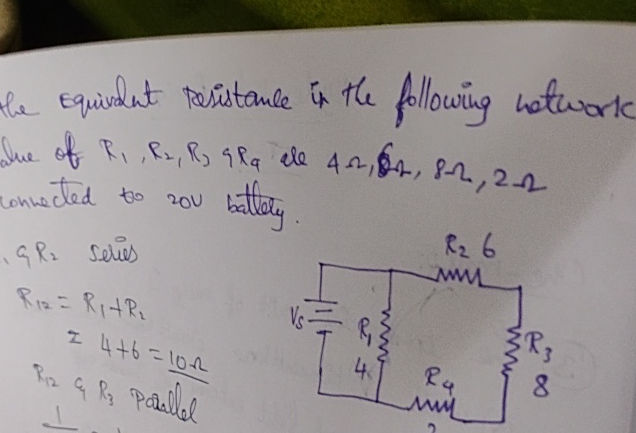 the Equivalent resistance in the following network
alue of R1, R2, R3 & R4 are 4Ω, 6Ω, 8Ω, 2Ω
connected to 20V battery.
& R2 series
R12 = R1 + R2
= 4+6 = 10Ω
R12 & R3 parallel
1
R2 6
Vs
R1
4
R3
8
R4
2